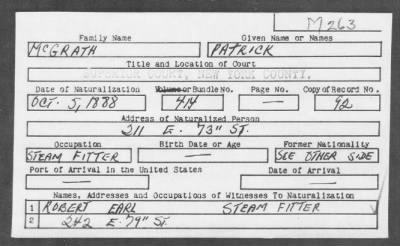 M263
Family Name Given Name or Names
McGRATH PATRICK
Title and Location of Court
SUPERIOR COURT, NEW YORK COUNTY.
Date of Naturalization Volume or Bundle No. Page No. Copy of Record No.
OCT. 5, 1888 414 — 92
Address of Naturalized Person
211 E. 73" ST.
Occupation Birth Date or Age Former Nationality
STEAM FITTER — SEE OTHER SIDE
Port of Arrival in the United States Date of Arrival
— —
Names, Addresses and Occupations of Witnesses To Naturalization
1 ROBERT EARL STEAM FITTER
2 242 E. 79" ST.